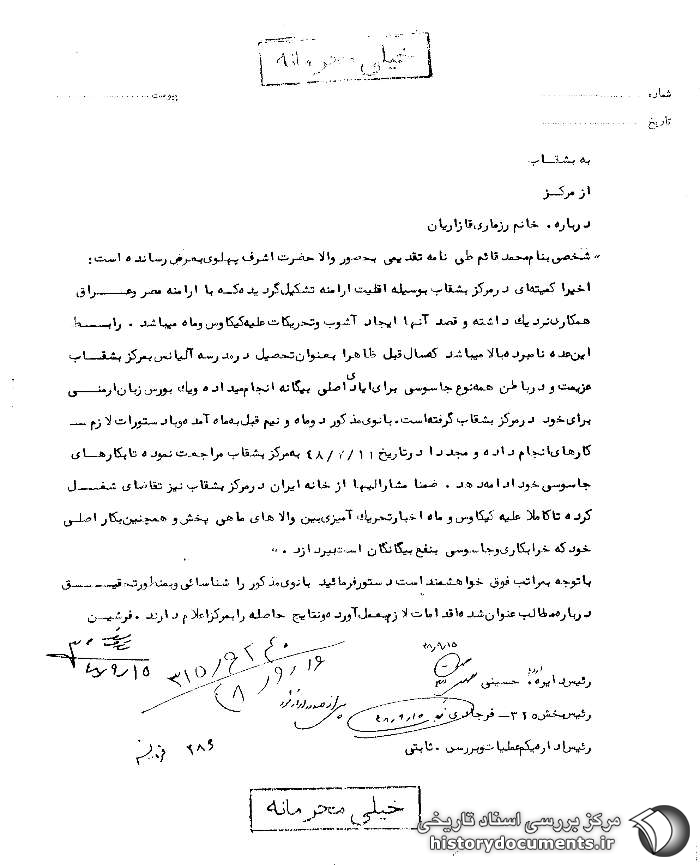 خیلی محرمانه
شماره
پیوست
تاریخ
به بشقاب
از مرکز
درباره . خانم رزماری قازاریان
" شخصی بنام محمد قائم طی نامه تقدیمی بحضور والا حضرت اشرف پهلوی بعرض رسانده است :
اخیرا کمیته‌ای در مرکز بشقاب بوسیله اقلیت ارامنه تشکیل گردیده که با ارامنه مصر و عراق
همکاری نزدیک داشته و قصد آنها ایجاد آشوب و تحریکات علیه کیکاوس و ماه میباشد . رابط
این عده نامبرده بالا میباشد که سال قبل ظاهرا بعنوان تحصیل در مدرسه آلیانس بمرکز بشقاب
عزیمت و در باطن همه نوع جاسوسی برای ایادی اصلی بیگانه انجام میداده و یک بورس زبان ارمنی
برای خود در مرکز بشقاب گرفته است . بانوی مذکور دو ماه و نیم قبل به ماه آمده و با دستورات لازم
کارهای انجام داده و مجددا در تاریخ ۴۸/۷/۱۱ به مرکز بشقاب مراجعت نموده تا بکارهای
جاسوسی خود ادامه دهد . ضمنا مشارالیها از خانه ایران در مرکز بشقاب نیز تقاضای شغل
کرده تا کاملا علیه کیکاوس و ماه اخبار تحریک آمیزی بین والا های ماهی پخش و همچنین بکار اصلی
خود که خرابکاری و جاسوسی بنفع بیگانگان است بپردازد . "
با توجه بمراتب فوق خواهشمند است دستور فرمائید بانوی مذکور را شناسائی و بمنظور تحقیق
درباره مطالب عنوان شده اقدامات لازم بعمل آورده و نتایج حاصله را بمرکز اعلام دارند . فرشین
۴۸/۹/۱۵
رئیس دایره : حسینی
رئیس بخش ۳۲۵ - فرجادی ۴۸/۹/۱۵
رئیس اداره یکم عملیات و بررسی . ثابتی
۴۸/۹/۱۵
۳۱۵/
۴۸/۹/۱۶
۲۸۶
خیلی محرمانه
مرکز بررسی اسناد تاریخی
historydocuments.ir